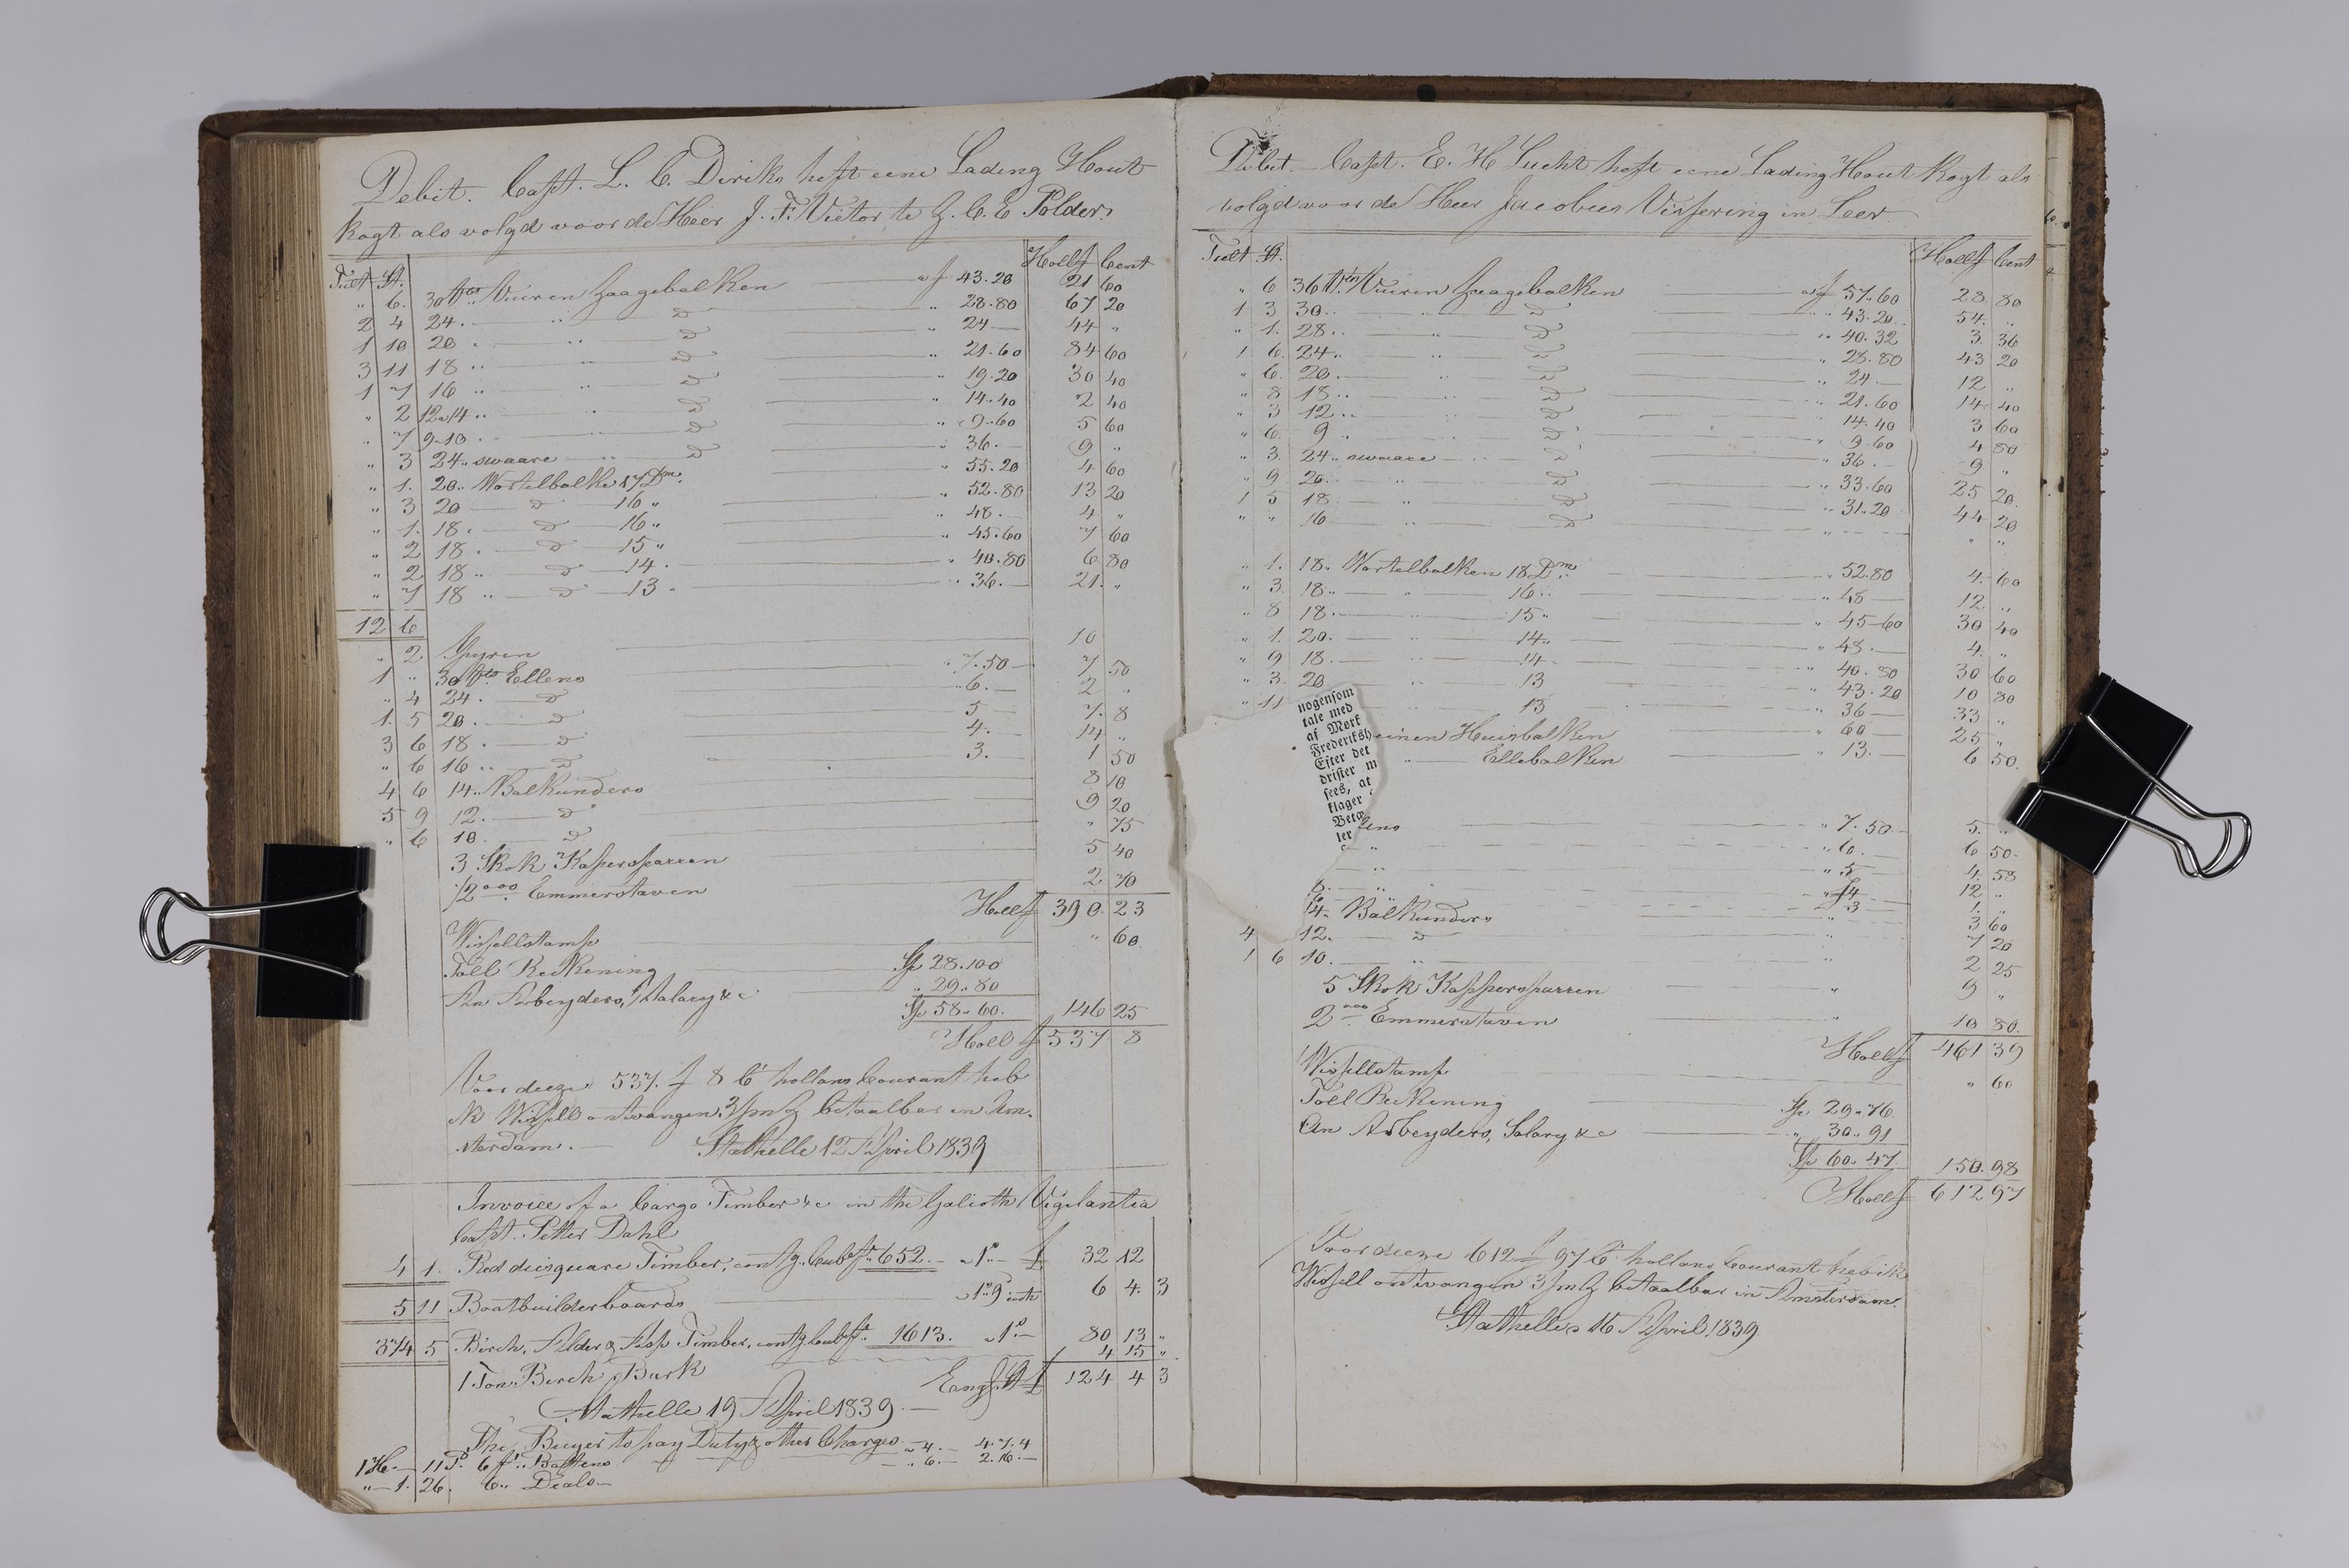 Debit. Capt. L. C. Diriks heft eene Lading Hout
kogt als volgd voor de Heer J. F. Victor te G. C. E Polder,
Tielt St. Hollf Cent
" 6. 30 vtes Vuuren Zaagebalken a f 43.20 21 60
2 4 24. " D " 28.80 67 20
1 10 20 " D " 24— 44 "
3 11 18 " D " 21.60 84 60
1 7 16 " D " 19.20 30 40
" 2 12 a 14 " D " 14.40 2 40
" 7 9-10 " D " 9.60 5 60
" 3 24 " swaare " D " 36.— 9 "
" 1. 20 " Wortelbalke 17 Dm. " 55.20 4 60
" 3 20 — D — 16 " " 52.80 13 20
" 1. 18. — D — 16 " " 48.— 4 "
" 2 18. — D — 15 " " 45.60 7 60
" 2 18 " — D — 14. " 40.80 6 80
" 7 18 " — D — 13 " " 36.— 21. "
12 6
" 2 Spyren 10
1 " 30 vtes Ellens " 7.50 7 50
" 4 24. — D " 6.— 2 "
1. 5 20. — D 5— 7. 8
3 6 18. — D 4. 14 "
" 6 16 " — D 3. 1 50
4 6 14 " Balkunders 8 10
5 9 12. — D 9 20
" 6 10. — D " 75
3 Skok Kaspersparren 5 40
1/2 ooo Emmerstaven 2 70
Hollf 390 23
Wissellstamp " 60.
Toll Reekening Sp 28.100
An Arbeyders, Salary &c " 29.80
Sp 58.60. 146 25
Holl f 537 8
Voor deeze 537. f 8 Ct hollans Courant heb
ik Wissell ontvangen 3/m dz betaalbar in Am.
sterdam.— Stathelle 12 April 1839
Invoice of a Cargo Timber &c in the Galioth Vigilantia
Capt. Petter Dahl
4 1. Red diesquare Timber, contg. Cubft. 652.— a 1"— £ 32 12
5 11 Boatbuilderboards a 1" 9 6 4. 3
374 5 Birch, Alder & Asp Timber, contg Cubft. 1613. a 1"— 80 13 "
1 Ton Birch Burk 4 15 "
Engl. St £ 124 4 3
Stathelle 19 April 1839.—
The Buyer to pay Duty & other Charges
1 H.— 11 P. 6 ft. Battens a 4.— 4.7.4
"—1. 26. 6 " Deals— " 6.— 2.16.—
Debit. Capt. E. H Lucht heft eene Lading Hout kogt als
volgd voor de Heer Jacobus Vissering in Leer.
Tielt St. Hollf Cent
" 6 36 vten Vuuren Zaagebalken a f 57.60 28. 80
1 3 30 " " D " 43.20. 54. "
" 1. 28 " " D " 40.32 3. 36
1 6. 24 " " D " 28.80 43 20
" 6. 20. " D " 24.— 12 "
" 8 18 " " D " 21.60 14. 40
" 3 12 " " D " 14.40 3 60
" 6. 9 " " D " 9.60 4 80
" 3. 24 " swaare " D " 36.— 9 "
" 9 20. " D " 33.60 25 20.
1 5 18 " D " 31.20 44 20
" " 16 " D " — — " "
" 1. 18. Wortelbalken 18 Dm " 52.80 4. 60
" 3. 18 " — " 16 " " 48— 12 "
" 8 18. — 15 " " 45-60 30 40
" 1. 20. — " 14 " " 48.— 4. "
" 9 18. — " 14. " 40.80 30 60
" 3. 20 " 13 " 43.20 10 80
" 11 " 13 " 36— 33 "
einen Huusbalken " 60— 25 "
" — Ellebalken " 13.— 6 50.
nogensom
tale med
af Mork
Frederiksh
Efter det
drifter m
sees, at
klager
Betæ
ler
ens " 7.50— 5. "
" " 6.— 6 50.
" " 5— 4. 58
8. — " " 4— 12 "
6 — " " 3— 1. "
14. Balkunders " 3 60
4 12. — D " 7 20
1 6 10. — " " 2 25
5 Skok Kapperssparren " 9 "
2 ooo Emmerstaven " 10 80.
Hollf 461 39
Wissellstamp " 60
Toll Reekening Sp 29.76.
An Arbeyders, Salary &c " 30.91
Sp 60.47. 150.98
Hollf 612 97
Voor deeze 612 f 97 Ct hollans Courant heb ik
Wissell ontvangen 3/m dz betaalbar in Amsterdam.
Stathelle 16 April 1839